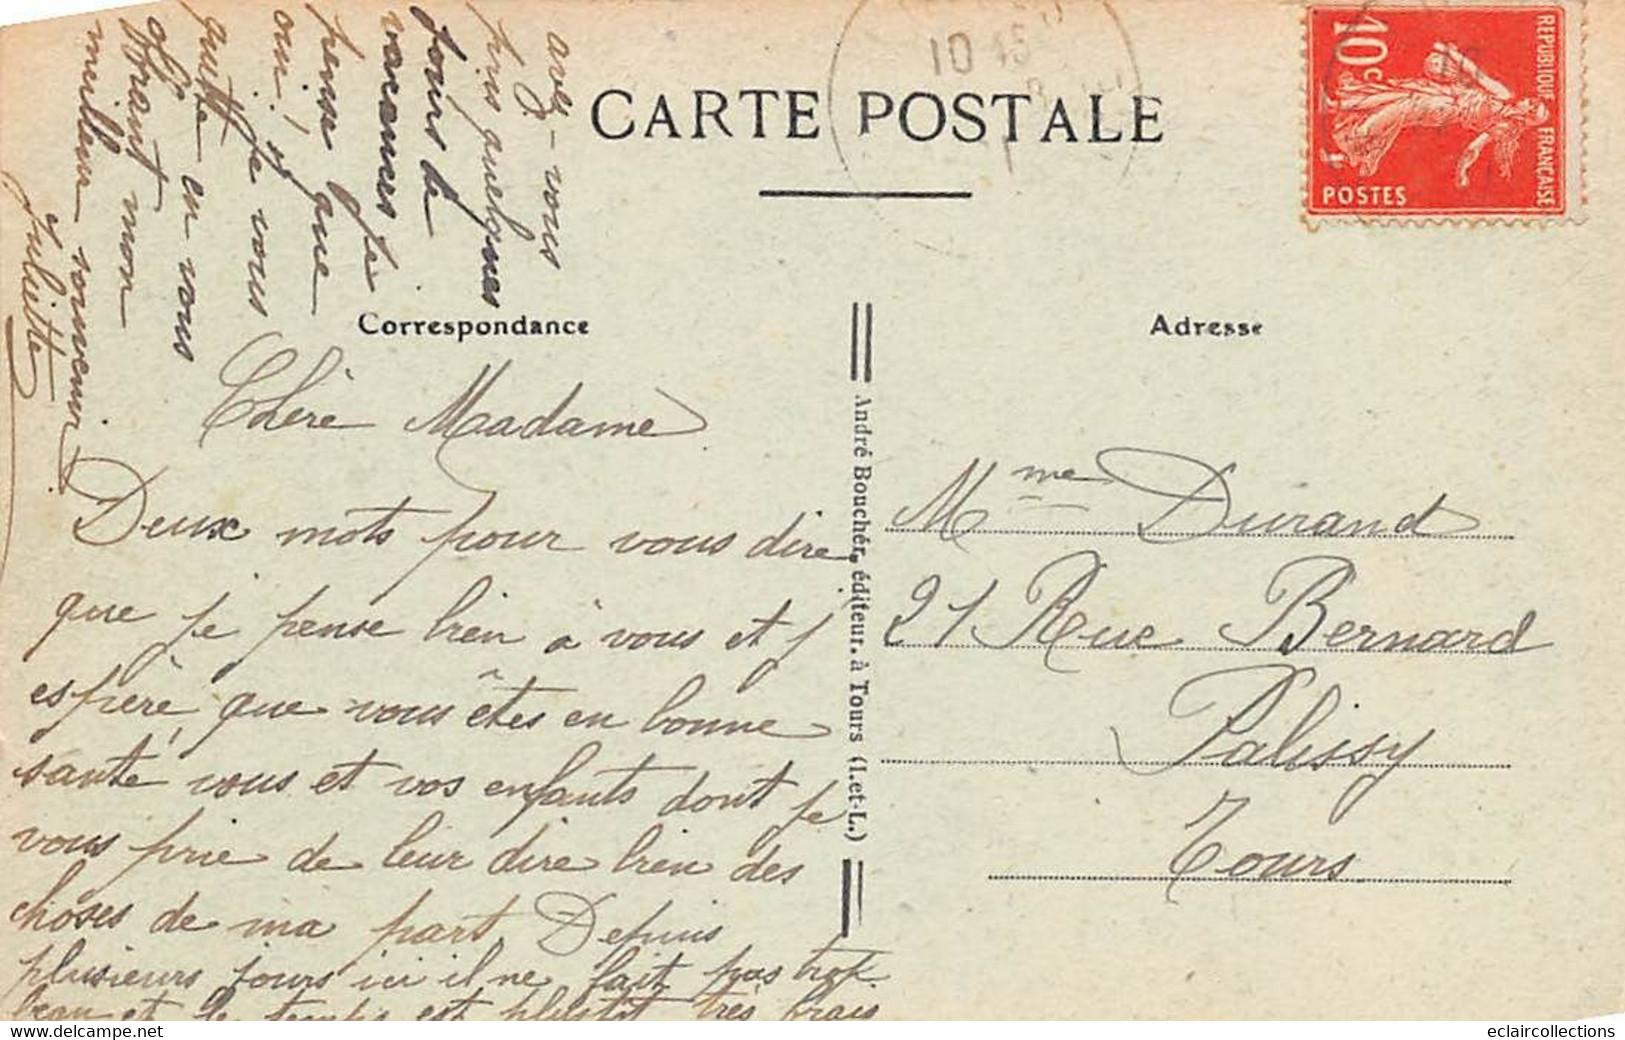 CARTE POSTALE
10 45
10c
REPUBLIQUE FRANCAISE
POSTES
Correspondance
Adresse
Chère Madame
Deux mots pour vous dire
que je pense bien à vous et j
espère que vous êtes en bonne
santé vous et vos enfants dont je
vous prie de leur dire bien des
choses de ma part Depuis
plusieurs jours ici il ne fait pas trop
beau et le temps est plustot très frais
avez-vous
pris quelques
jours de
vacances je
pense que
oui, je vous
quitte en vous
offrant mon
meilleur souvenir
Juliette
André Bouchér, éditeur, à Tours (I.-et-L.)
Mme Durand
21 Rue Bernard
Palissy
Tours
eclaircollections